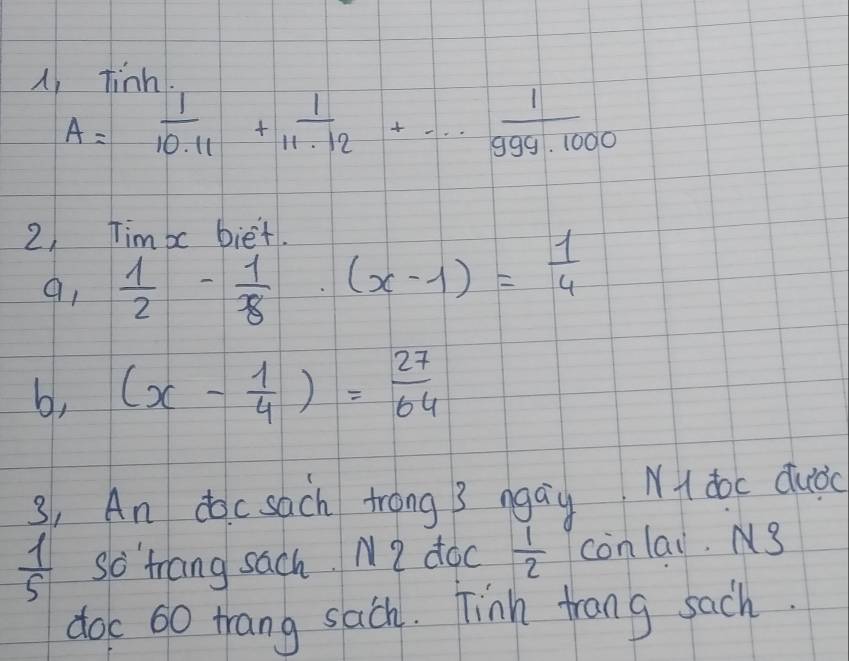 1, Tính.
A = 1/10.11 + 1/11.12 + .... 1/999.1000
2, Tìm x biết.
a, 1/2 - 1/8 . (x - 1) = 1/4
b, (x - 1/4) = 27/64
3, An đọc sách trong 3 ngày. N1 đọc được
1/5 số trang sách. N2 đọc 1/2 còn lại. N3
đọc 60 trang sách. Tính trang sách.